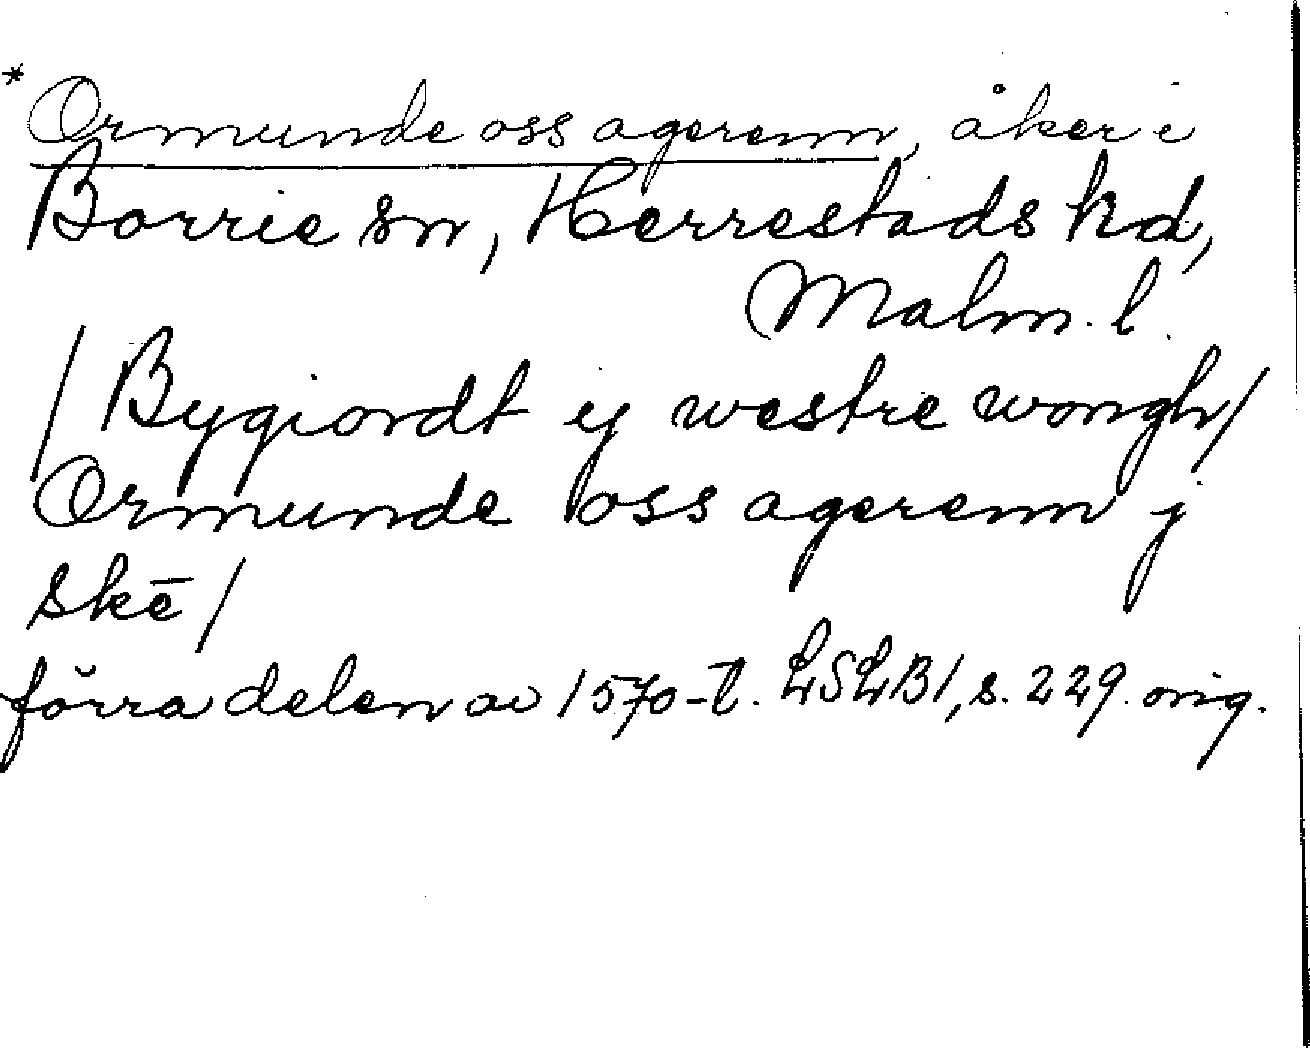 * Ormunde oss agerenn, åker i
Borrie sn, Herrestads hd,
Malm. l.
/ Bygiordt ij westre wongh /
Ormunde oss agerenn j
skē /
förra delen av 1570-t. LSLB1, s. 229. orig.